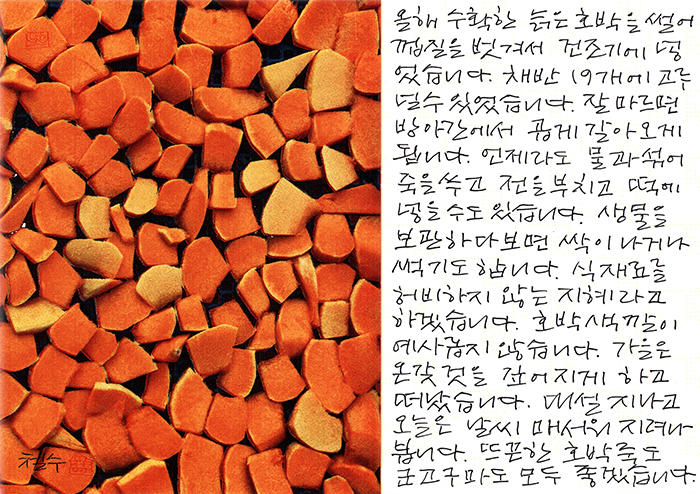 올해 수확한 늙은 호박을 썰어
껍질을 벗겨서 건조기에 넣
었습니다. 채반 19개에 고루
널 수 있었습니다. 잘 마르면
방아간에서 곱게 갈아오게
됩니다. 언제라도 물과 섞어
죽을 쑤고 전을 부치고 떡에
넣을 수도 있습니다. 생물을
보관하다 보면 싹이 나거나
썩기도 합니다. 식재료를
허비하지 않는 지혜라고
하겠습니다. 호박 색깔이
예사롭지 않습니다. 가을은
온갖 것을 짙어지게 하고
떠났습니다. 대설 지나고
오늘은 날씨 매서워 지려나
봅니다. 뜨끈한 호박죽도
군고구마도 모두 좋겠습니다.
철수